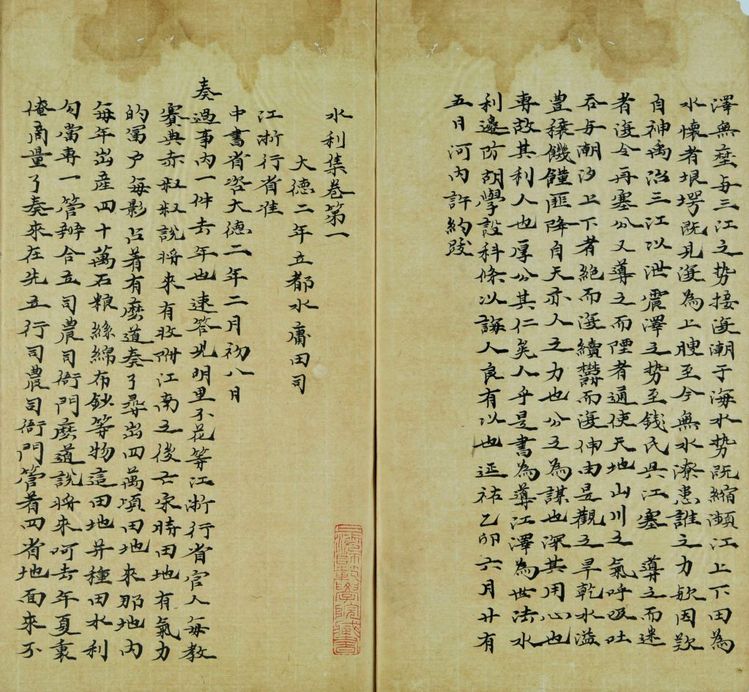 澤無壅与三江之勢接逆潮于海水勢既縮瀕江上下田為
水懷者垠堮既見遂為上腴至今無水潦患誰之力歟因歎
自神禹治三江以泄震澤之勢至錢氏具江塞 導之而迷
者遂今再塞公又導之而陻者通使天地山川之氣呼吸吐
吞与潮汐上下者絕而遂續欝而遂伸由是觀之旱乾水溢
豊穰饑饉匪降自天亦人之力也公之為謀也深其用心也
專故其利人也厚公其仁矣人乎是書為導江澤為世法水
利邊防胡學設科條以誨人良有以也延祐乙卯六月廿有
五日河内許約跋
水利集卷第一
大德二年立都水庸田司
江淛行省准
中書省咨大德二年二月初八日
奏過事内一件去年也速答兒明里不花等江淛行省官人每教
賽典赤奴奴說將來有收附江南之後亡宋時田地有氣力
的富户每影占着有麽道奏了尋出四萬頃田地來那地内
每年出産四十萬石粮絲綿布鈔等物這田地并種田水利
勾當專一管辦合立司農司衙門麽道說將來呵去年夏裏
俺商量了奏來在先立行司農司衙門管着四省地面來不
上海師範學院藏書